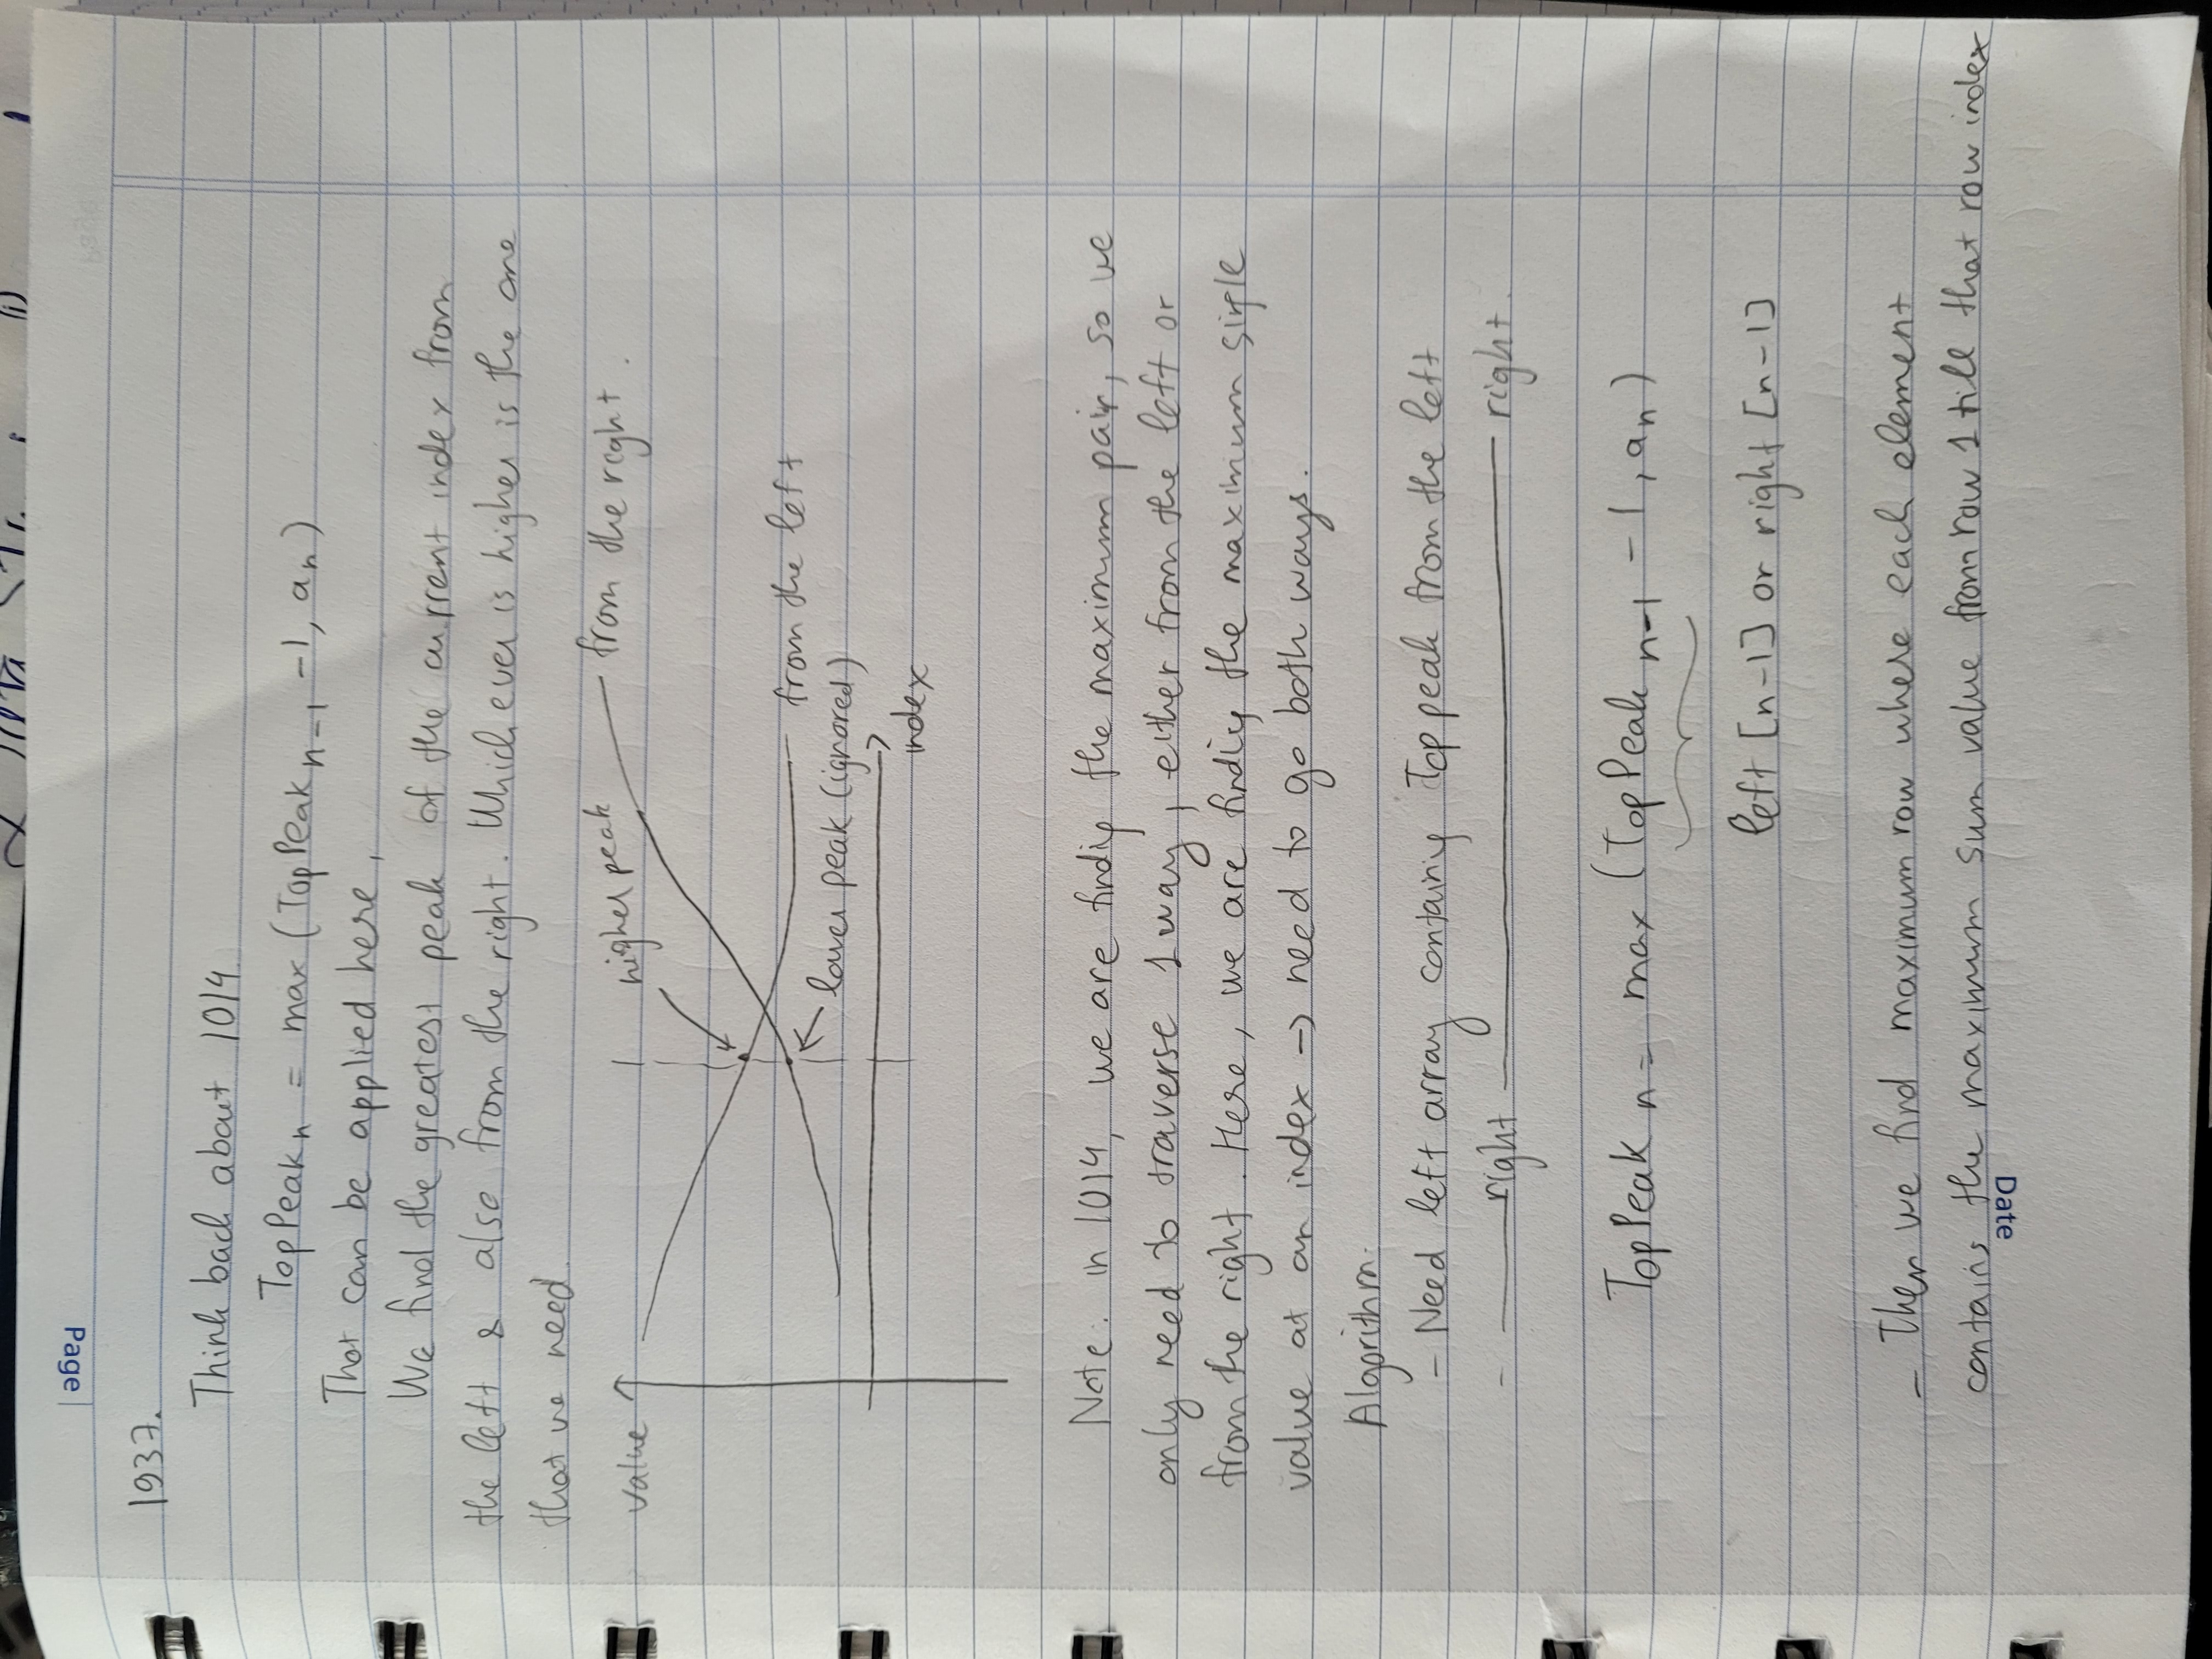 Page
1937.
Think back about 1014
TopPeak n = max (TopPeak n-1 -1, an)
That can be applied here,
We find the greatest peak of the current index from
the left & also from the right. Which ever is higher is the one
that we need.
higher peak
from the right.
value
from the left
lower peak (ignored)
index
Note: in 1014, we are findig the maximum pair, so we
only need to traverse 1 way, either from the left or
from the right. Here, we are findig the maximum sigle
value at an index → need to go both ways.
Algorithm:
- Need left array containig Top peak from the left
- right right.
TopPeak n = max (TopPeak n-1 -1, an)
left [n-1] or right [n-1]
- Then we find maximum row where each element
contains the maximum sum value from row 1 till that row index
Date